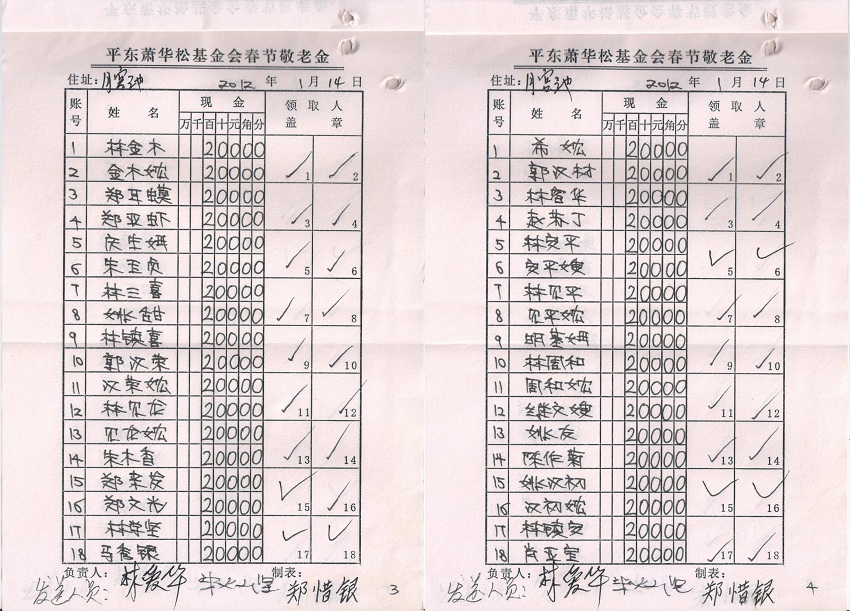 平东萧华松基金会春节敬老金
住址:月宫池 2012 年 1 月 14 日
账号 姓 名 现 金 领 取 人 盖 章
万 千 百 十 元 角 分
1 林金木 20000
2 金木妐 20000 1 2
3 郑亚蟆 20000
4 郑亚虾 20000 3 4
5 庆生姆 20000
6 朱玉贞 20000 5 6
7 林三喜 20000
8 姚 20000 7 8
9 林镇喜 20000
10 郭汉荣 20000 9 10
11 汉荣妐 20000
12 林见龙 20000 11 12
13 见龙妐 20000
14 朱木香 20000 13 14
15 郑来发 20000
16 郑文光 20000 15 16
17 林学坚 20000
18 马秀银 20000 17 18
负责人: 制表:
发送人员: 林爱华 郑惜银 3
平东萧华松基金会春节敬老金
住址:月宫池 2012 年 1 月 14 日
账号 姓 名 现 金 领 取 人 盖 章
万 千 百 十 元 角 分
1 希妐 20000
2 郭汉材 20000 1 2
3 林容华 20000
4 赵苏丁 20000 3 4
5 林安平 20000
6 安平嫂 20000 5 6
7 林见平 20000
8 见平妐 20000 7 8
9 明基姆 20000
10 林周和 20000 9 10
11 周和妐 20000
12 继文嫂 20000 11 12
13 姚友 20000
14 陈作菊 20000 13 14
15 姚汉初 20000
16 汉初妐 20000 15 16
17 林镇安 20000
18 肖亚宝 20000 17 18
负责人: 制表:
发送人员: 林爱华 郑惜银 4